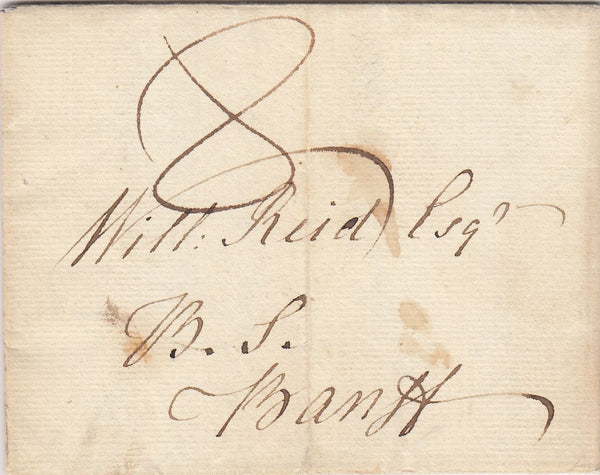 8
Will: Reid Esqr
B. S.
Banff